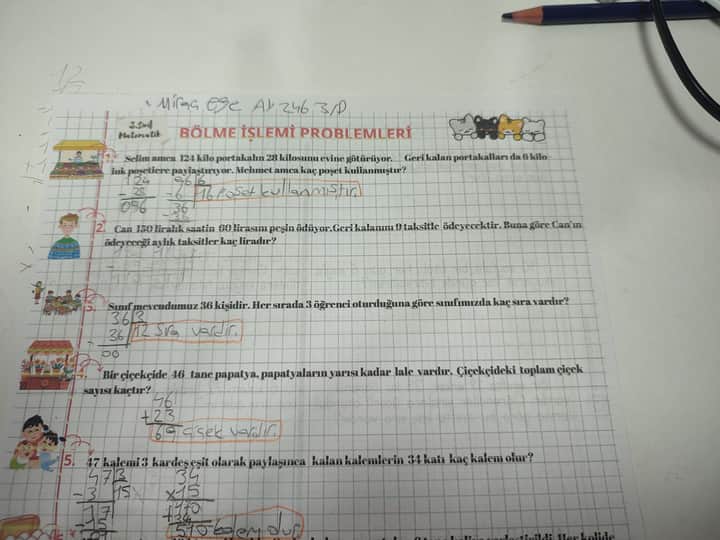 Miraç Ege Al 246 3/D
3.Sınıf
Matematik
BÖLME İŞLEMİ PROBLEMLERİ
1. Selim amca 124 kilo portakalın 28 kilosunu evine götürüyor. Geri kalan portakalları da 6 kilo
luk poşetlere paylaştırıyor. Mehmet amca kaç poşet kullanmıştır?
124 96 6
- 28 - 6 16 poşet kullanmıştır.
096 36
- 36
2. Can 150 liralık saatin 60 lirasını peşin ödüyor.Geri kalanını 9 taksitle ödeyecektir. Buna göre Can'ın
ödeyeceği aylık taksitler kaç liradır?
3. Sınıf mevcudumuz 36 kişidir. Her sırada 3 öğrenci oturduğuna göre sınıfımızda kaç sıra vardır?
36 3
- 36 12 sıra vardır.
00
Bir çiçekçide 46 tane papatya, papatyaların yarısı kadar lale vardır. Çiçekçideki toplam çiçek
sayısı kaçtır?
46
+ 23
69 çiçek vardır.
5. 47 kalemi 3 kardeş eşit olarak paylaşınca kalan kalemlerin 34 katı kaç kalem olur?
47 3 34
- 3 15 x 15
17 170
- 15 + 34
510 kalem olur